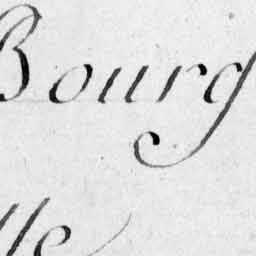 Bourg
lle